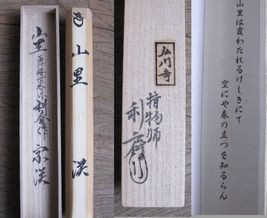 山里
宗渓
山里
渓
弘川寺
指物師
利斎
山里は霞わたれるけしきにて
空にや春の立つを知るらん